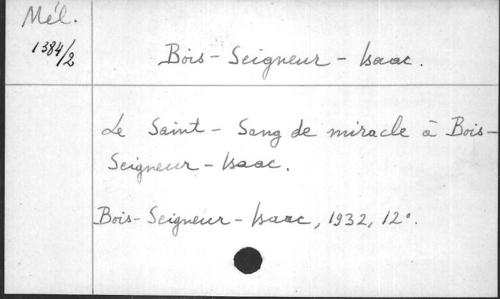 Mél.
1384/2
Bois-Seigneur-Isaac.
Le Saint-Sang de miracle à Bois-
Seigneur-Isaac.
Bois-Seigneur-Isaac, 1932, 12°.